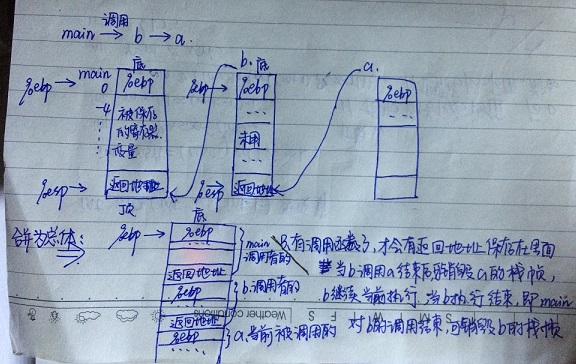 调用
main → b → a.
底
b. 底
a.
%ebp → main
0
%ebp
%ebp →
%ebp
%ebp
-4
被保存
的寄存器
变量
...
未用
...
%esp →
返回地址
%esp →
返回地址
顶
底
合并为总体:
%ebp →
%ebp
...
返回地址
main
调用者的
%ebp
...
返回地址
b.调用者的
%ebp
...
a.当前被调用的
只有调用函数了,才会有返回地址保存在里面
当b调用a结束后,销毁a的栈帧,
b继续当前执行.当b执行结束,即main
对b的调用结束,回销毁b的栈帧
Weather conditions
S
M
W
F
S